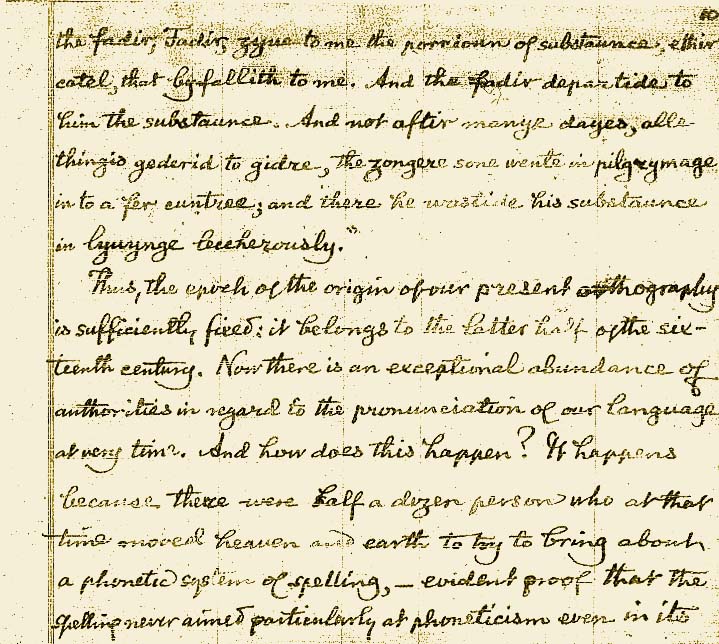 10
the fadir, Fadir, zyue to me the porcioun of substaunce, ethir
catel, that byfallith to me. And the fadir departide to
him the substaunce. And not aftir manye dayes, alle
thingis gederid to gidre, the zongere sone wente in pilgrymage
in to a fer cuntree; and there he wastide his substaunce
in lyuynge leccherously."
Thus, the epoch of the origin of our present orthography
is sufficiently fixed: it belongs to the latter half of the six-
teenth century. Now there is an exceptional abundance of
authorities in regard to the pronunciation of our language
at very time. And how does this happen? It happens
because there were half a dozen person who at that
time moved heaven and earth to try to bring about
a phonetic system of spelling, — evident proof that the
spelling never aimed particularly at phoneticism even in its